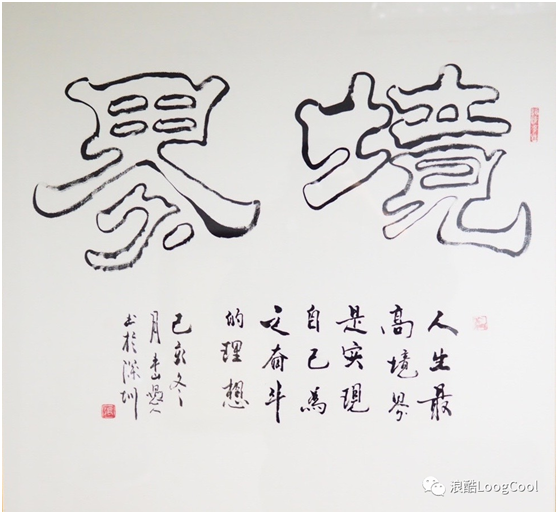 境界
人生最
高境界
是实現
自己為
之奋斗
的理想
己亥冬
月
书於深圳
浪酷LoogCool